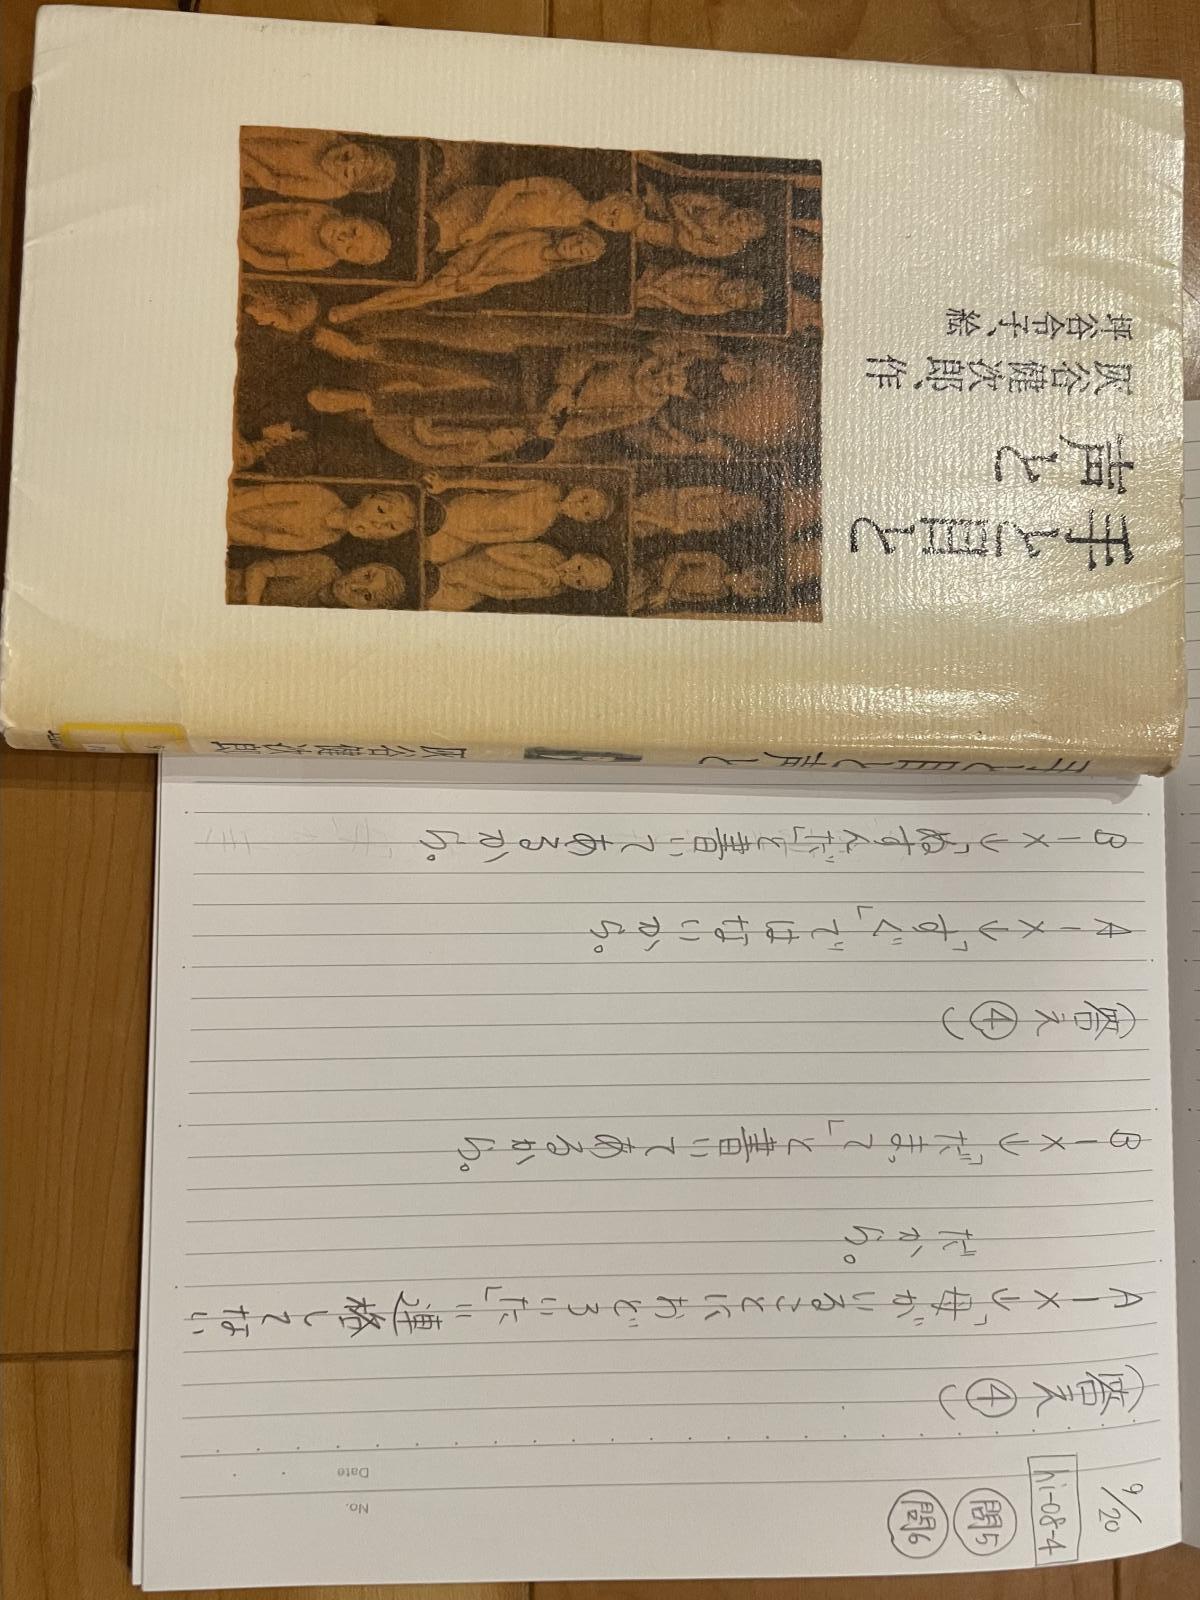 手と目と
声と
灰谷健次郎、作
坪谷令子、絵
手と目と声と
灰谷健次郎
9/20
hi-08-4
問5
問6
No.
Date
(答え ④)
A－×→「母がいることにおどろいた」に連絡してない
だから。
B－×→「だまって」と書いてあるから。
(答え ④)
A－×→「すぐ」ではないから。
B－×→「ぬすんだ」と書いてあるから。